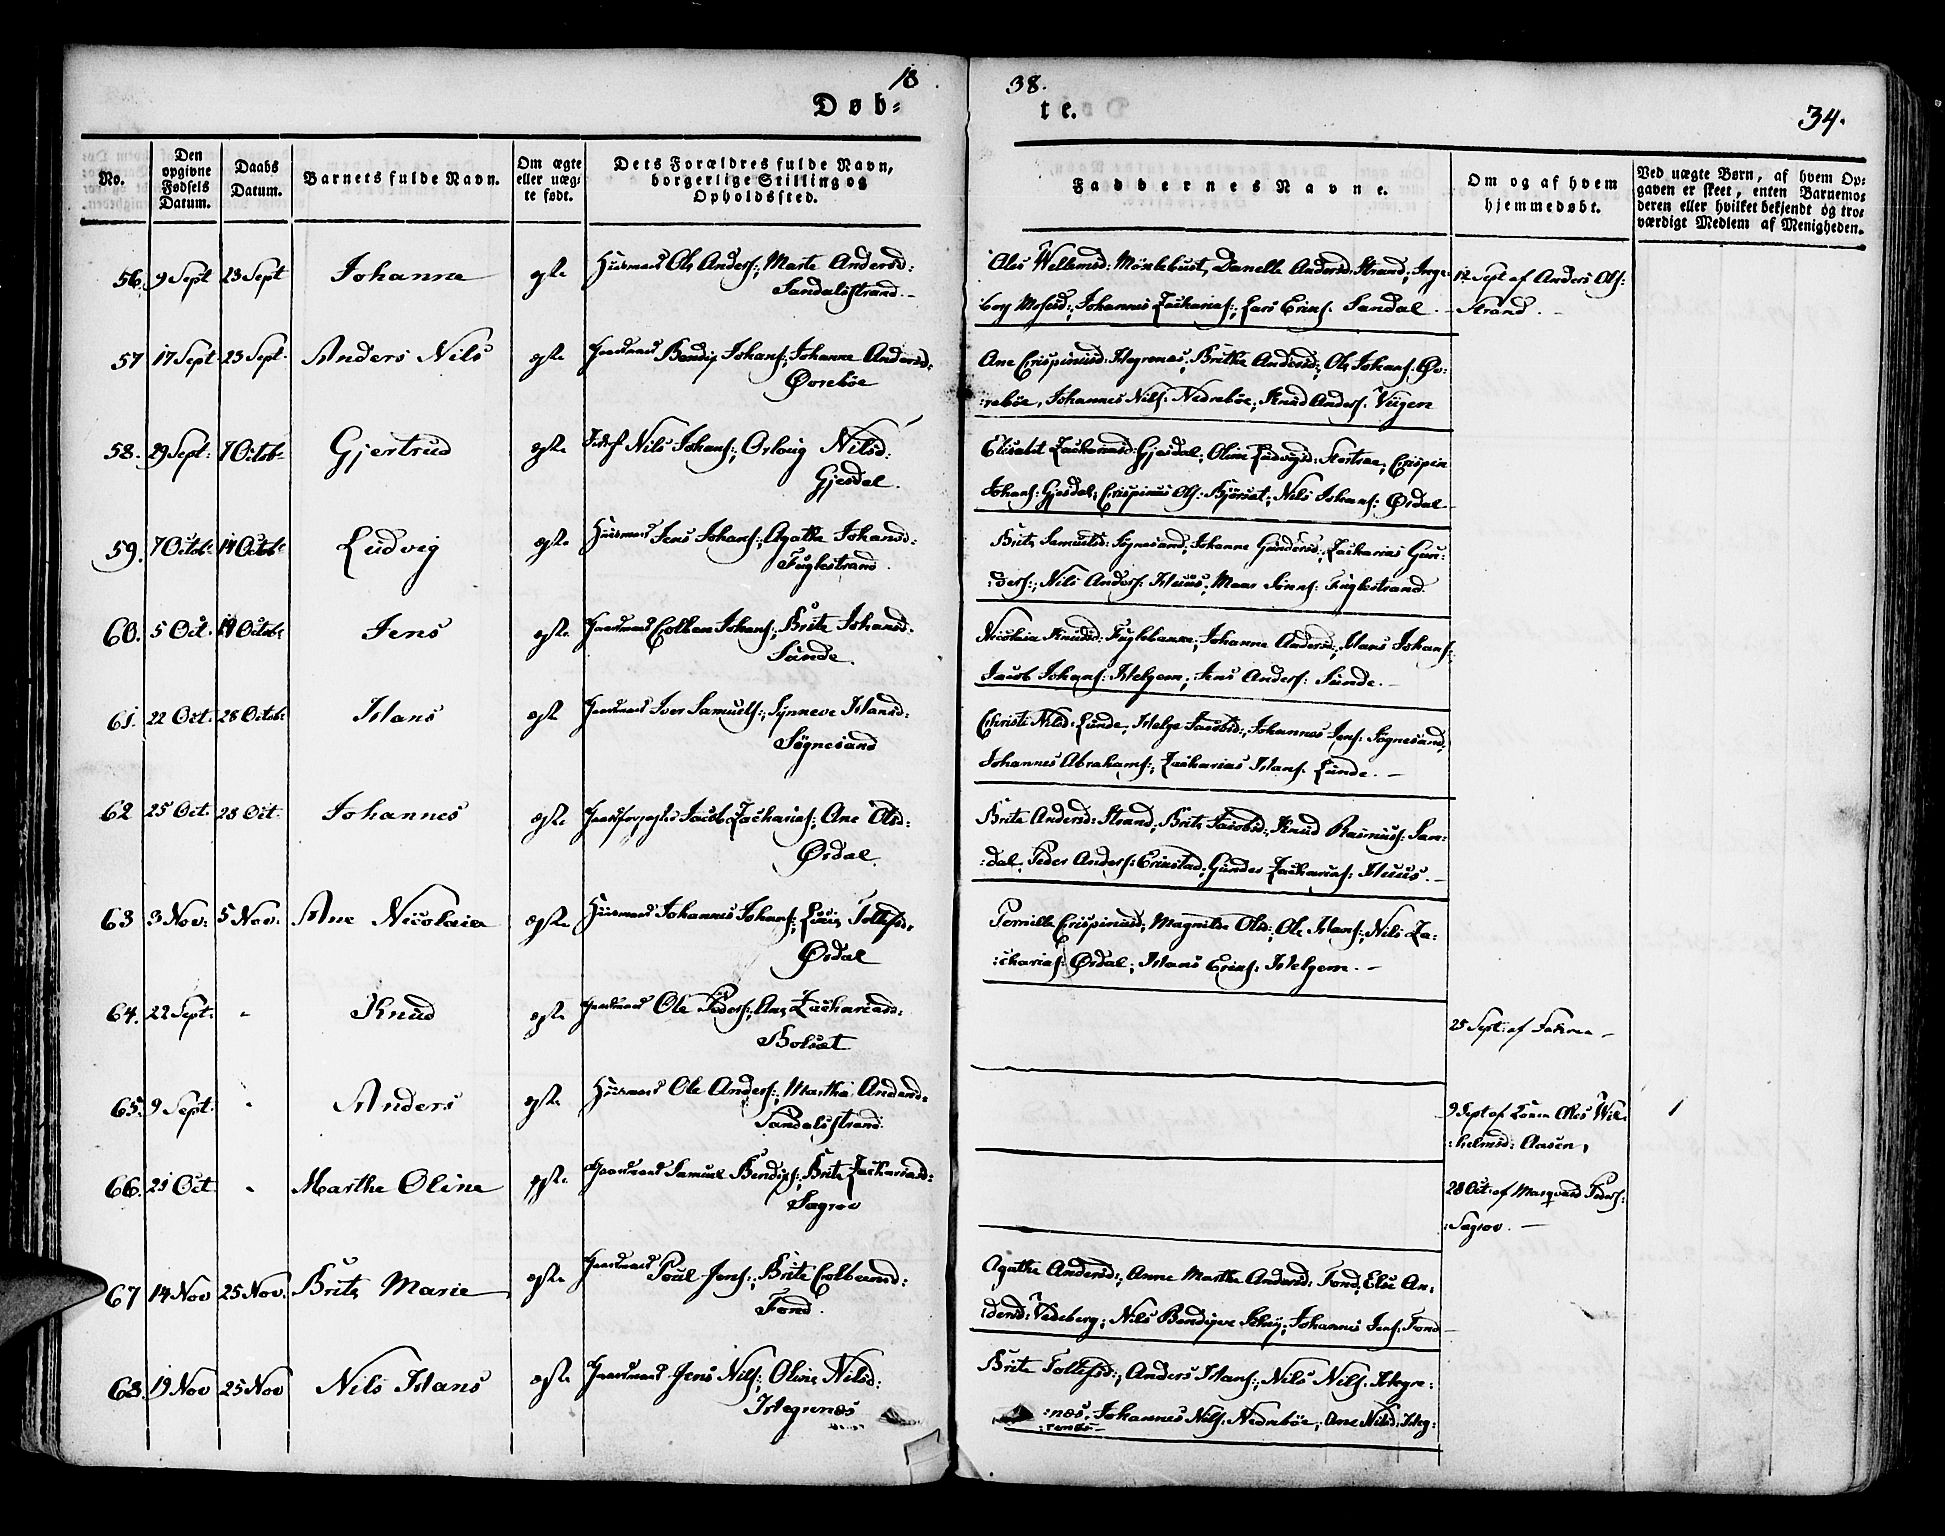 18
38.
Døb=
te.
34.
No.
Den opgivne Fødsels Datum.
Daabs Datum.
Barnets fulde Navn.
Om ægte eller uæg- te født.
Dets Forældres fulde Navn, borgerlige Stilling og Opholdssted.
Faddernes Navne.
Om og af hvem hjemmedøbt.
Ved uægte Børn, af hvem Op= gaven er skeet, enten Barnemo= deren eller hvilket bekjendt og tro= værdigt Medlem af Menigheden.
56. 9 Sept 23 Sept Johanne egte Huusmand Ole Anders:, Marte Andersd:
Sandalsstrand.
Oles Wellemsd: Myklebust, Danelle Andersd: Strand; Inge-
borg Mosesd:, Johannes Zacharias:, Lars Erins. Sandal.
12 Sept af Anders Ols:
Strand.
57 17 Sept 23 Sept. Anders Nils egte Gaardmand Bendix Johans:, Johanne Andersd:
Øvrebøe
Ane Crispinusd: Hegrenæs; Brithe Andersd:, Ole Johans. Øv-
:rebøe, Johannes Nils. Nedrebøe; Knud Anders. Viigen
58. 29 Sept: 7 Octob: Gjertrud egte Nils Johans:, Orloug Nilsd:
Gjesdal.
Elisabet Zachariasd: Gjesdal; Oline Ludvigsd: Crispin
Johans: Gjesdal; Crispinus Ols: Nils Johans: Ørdal
59. 7 Octob: 14 Octob: Ludvig egte Huusmand Jens Johans:, Agathe Johansd:
Fuglestrand.
Brite Samuelsd: Søgnesand; Johanne Gundersd:, Zacharias Gun:
:ders:, Nils Anders: Huus; Fuglestrand.
60. 5 Oct. 14 Octob: Jens egte Gaardmand Colben Johans:, Brite Johansd.
Sunde.
Nicolaia Knudsd: Johanne Andersd:, Hans Johans:
Jacob Johans: Helgem; Jens Anders: Sunde.
61. 22 Oct. 28 Octob: Hans egte Gaardmand Iver Samuels:, Synneve Hansd:
Søgnesand
Christi Nilsd: Lunde, Helge Jacobsd:, Johannes Jens: Søgnesand,
Johannes Abrahams:, Zacharias Hans. Lunde.
62 25 Oct. 28 Oct. Johannes egte Jacob Zacharias:, Ane Olsd:
Ørdal.
Brite Andersd: Strand; Brite Jacobsd:, Knud Rasmus: San:
:dal, Peder Anders: Erinstad; Gunder Zacharias: Huus.
63 3 Nov: 5 Nov: Ane Nicolaia egte Huusmand Johannes Johans:, Tollefsd,
Ørdal
Pernille Crispinusd; Magnilde Olsd:, Ole Hans:, Nils Za:
:charias: Ørdal; Hans Erins: Helgem.
64. 22 Sept: - Knud egte Gaardmand Ole Peders:, Ane Zachariasd:
Bolsæt
25 Sept: af
65. 9 Sept. - Anders egte Huusmand Ole Anders:, Marthe Andersd:
Sandalsstrand.
9 Sept af Konen Oles Wil:
:helmsd: Aasen,
1
66. 21 Oct - Marthe Oline egte Gaardmand Samuel Bendixs:, Brite Zachariasd:
Sagrov
28 Oct: af Marqvard Peders:
Sagrov.
67 14 Nov 25 Nov. Brite Marie egte Gaardmand Poul Jens:, Brite Colbensd:
Fond.
Agathe Andersd:, Anne Marthe Andersd: Fond, Else An:
:dersd: Vedeberg; Nils Johannes Jens: Fond
68. 19 Nov 25 Nov Nils Hans egte Gaardmand Jens Nils:, Oline Nilsd:
Hegrenæs
Brite Tollefsd:, Anders Hans:, Nils Nils. Hegre:
:næs, Johannes Nils. Nedrebøe; Ane Nilsd: Heg:
:renæs